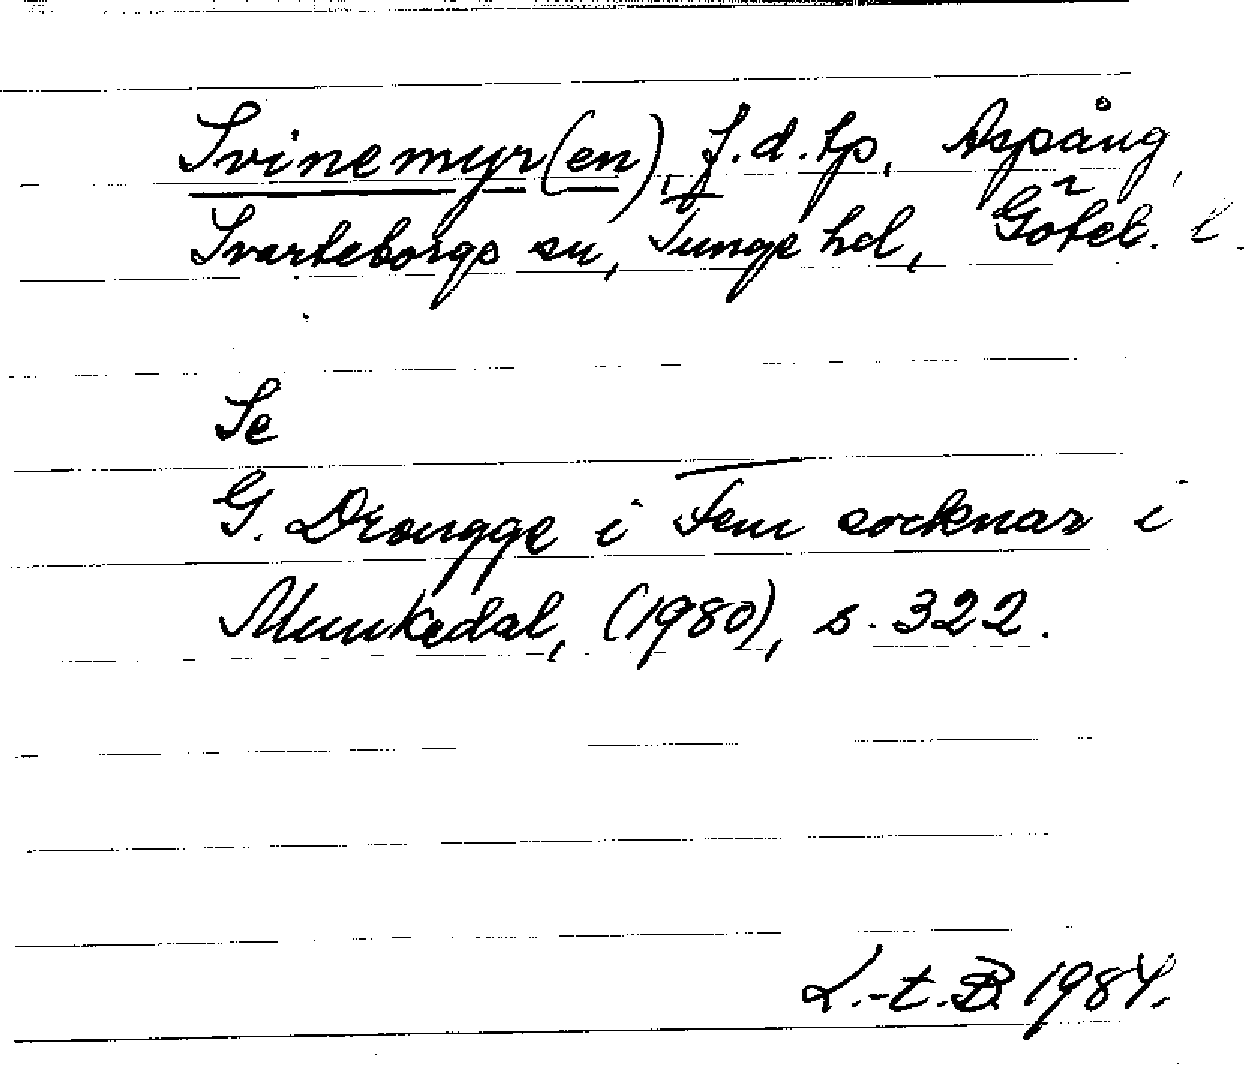 Svinemyr(en), f.d. tp, Aspång,
Svarteborgs sn, Tunge hd, Göteb. l.
Se
G. Drougge i Fem socknar i
Munkedal, (1980), s. 322.
L.-t. B. 1984.